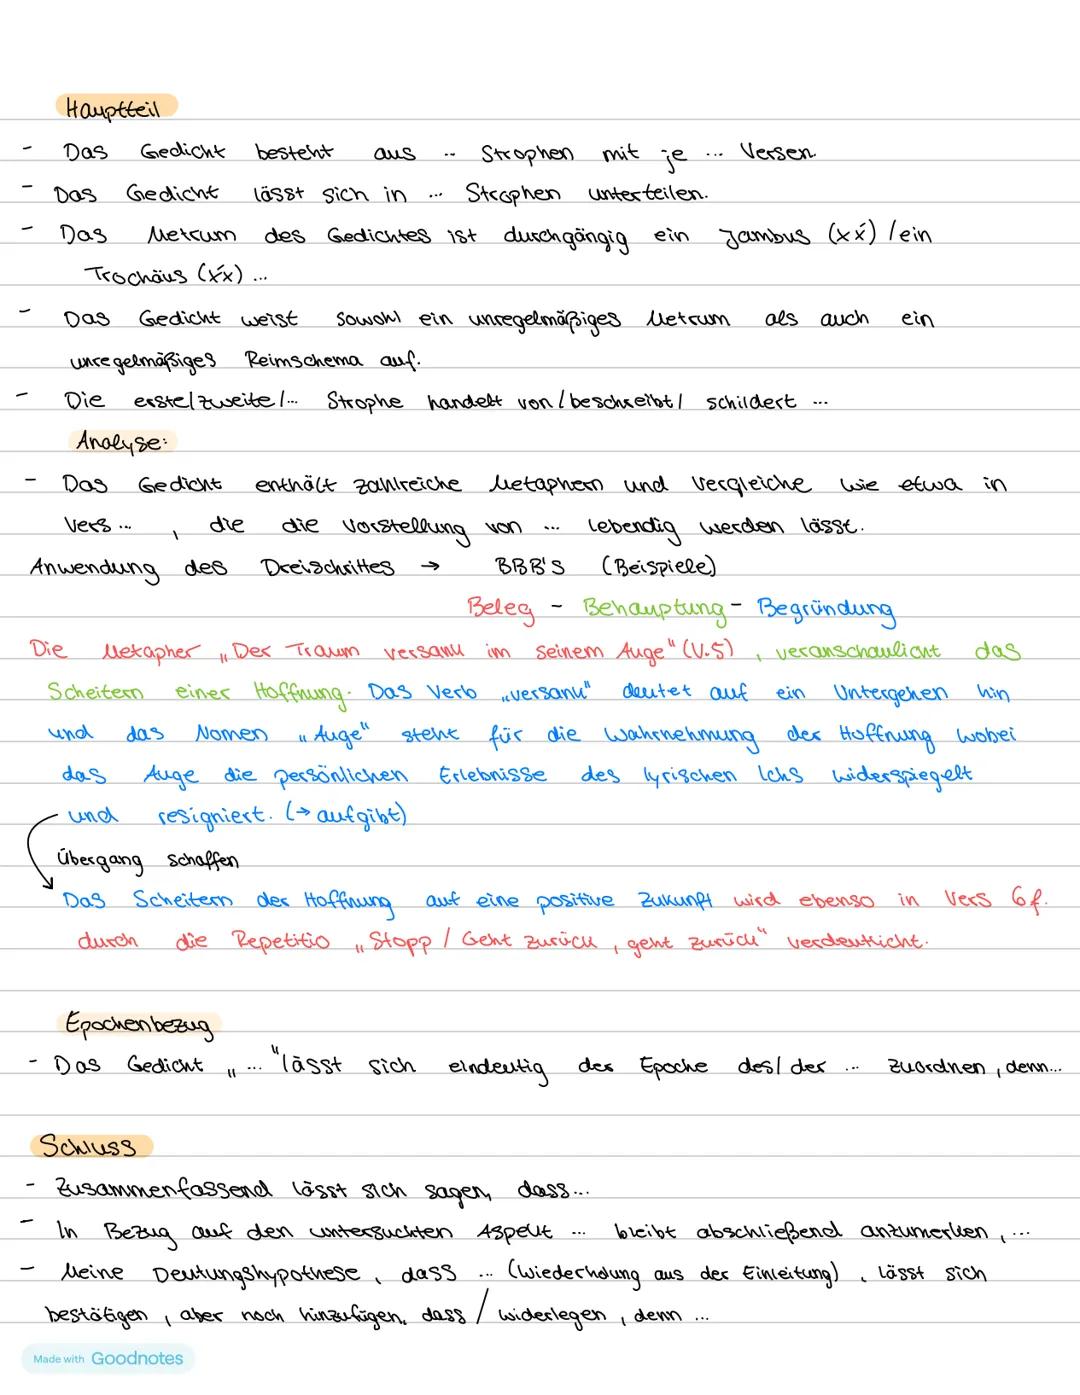 Hauptteil
- Das Gedicht besteht aus ... Strophen mit je ... Versen
- Das Gedicht lässt sich in ... Strophen unterteilen.
- Das Metrum des Gedichtes ist durchgängig ein Jambus (xx́) / ein
Trochäus (x́x) ...
- Das Gedicht weist sowohl ein unregelmäßiges Metrum als auch ein
unregelmäßiges Reimschema auf.
- Die erste/zweite/... Strophe handelt von / beschreibt / schildert ...
Analyse:
- Das Gedicht enthält zahlreiche Metaphern und Vergleiche wie etwa in
Vers ... , die die Vorstellung von ... lebendig werden lässt.
Anwendung des Dreischrittes → BBB's (Beispiele)
Beleg - Behauptung - Begründung
Die Metapher „Der Traum versank im seinem Auge" (V.5) , veranschaulicht das
Scheitern einer Hoffnung. Das Verb „versank" deutet auf ein Untergehen hin
und das Nomen „Auge" steht für die Wahrnehmung der Hoffnung wobei
das Auge die persönlichen Erlebnisse des lyrischen Ichs widerspiegelt
und resigniert. (→ aufgibt)
Übergang schaffen
Das Scheitern der Hoffnung auf eine positive Zukunft wird ebenso in Vers 6f.
durch die Repetitio „Stopp / Geht zurück, geht zurück" verdeutlicht.
Epochenbezug
- Das Gedicht „..." lässt sich eindeutig der Epoche des/der ... zuordnen, denn...
Schluss
- Zusammenfassend lässt sich sagen, dass...
- In Bezug auf den untersuchten Aspekt ... bleibt abschließend anzumerken, ...
- Meine Deutungshypothese, dass ... (Wiederholung aus der Einleitung), lässt sich
bestätigen, aber noch hinzufügen, dass / widerlegen, denn ...
Made with Goodnotes